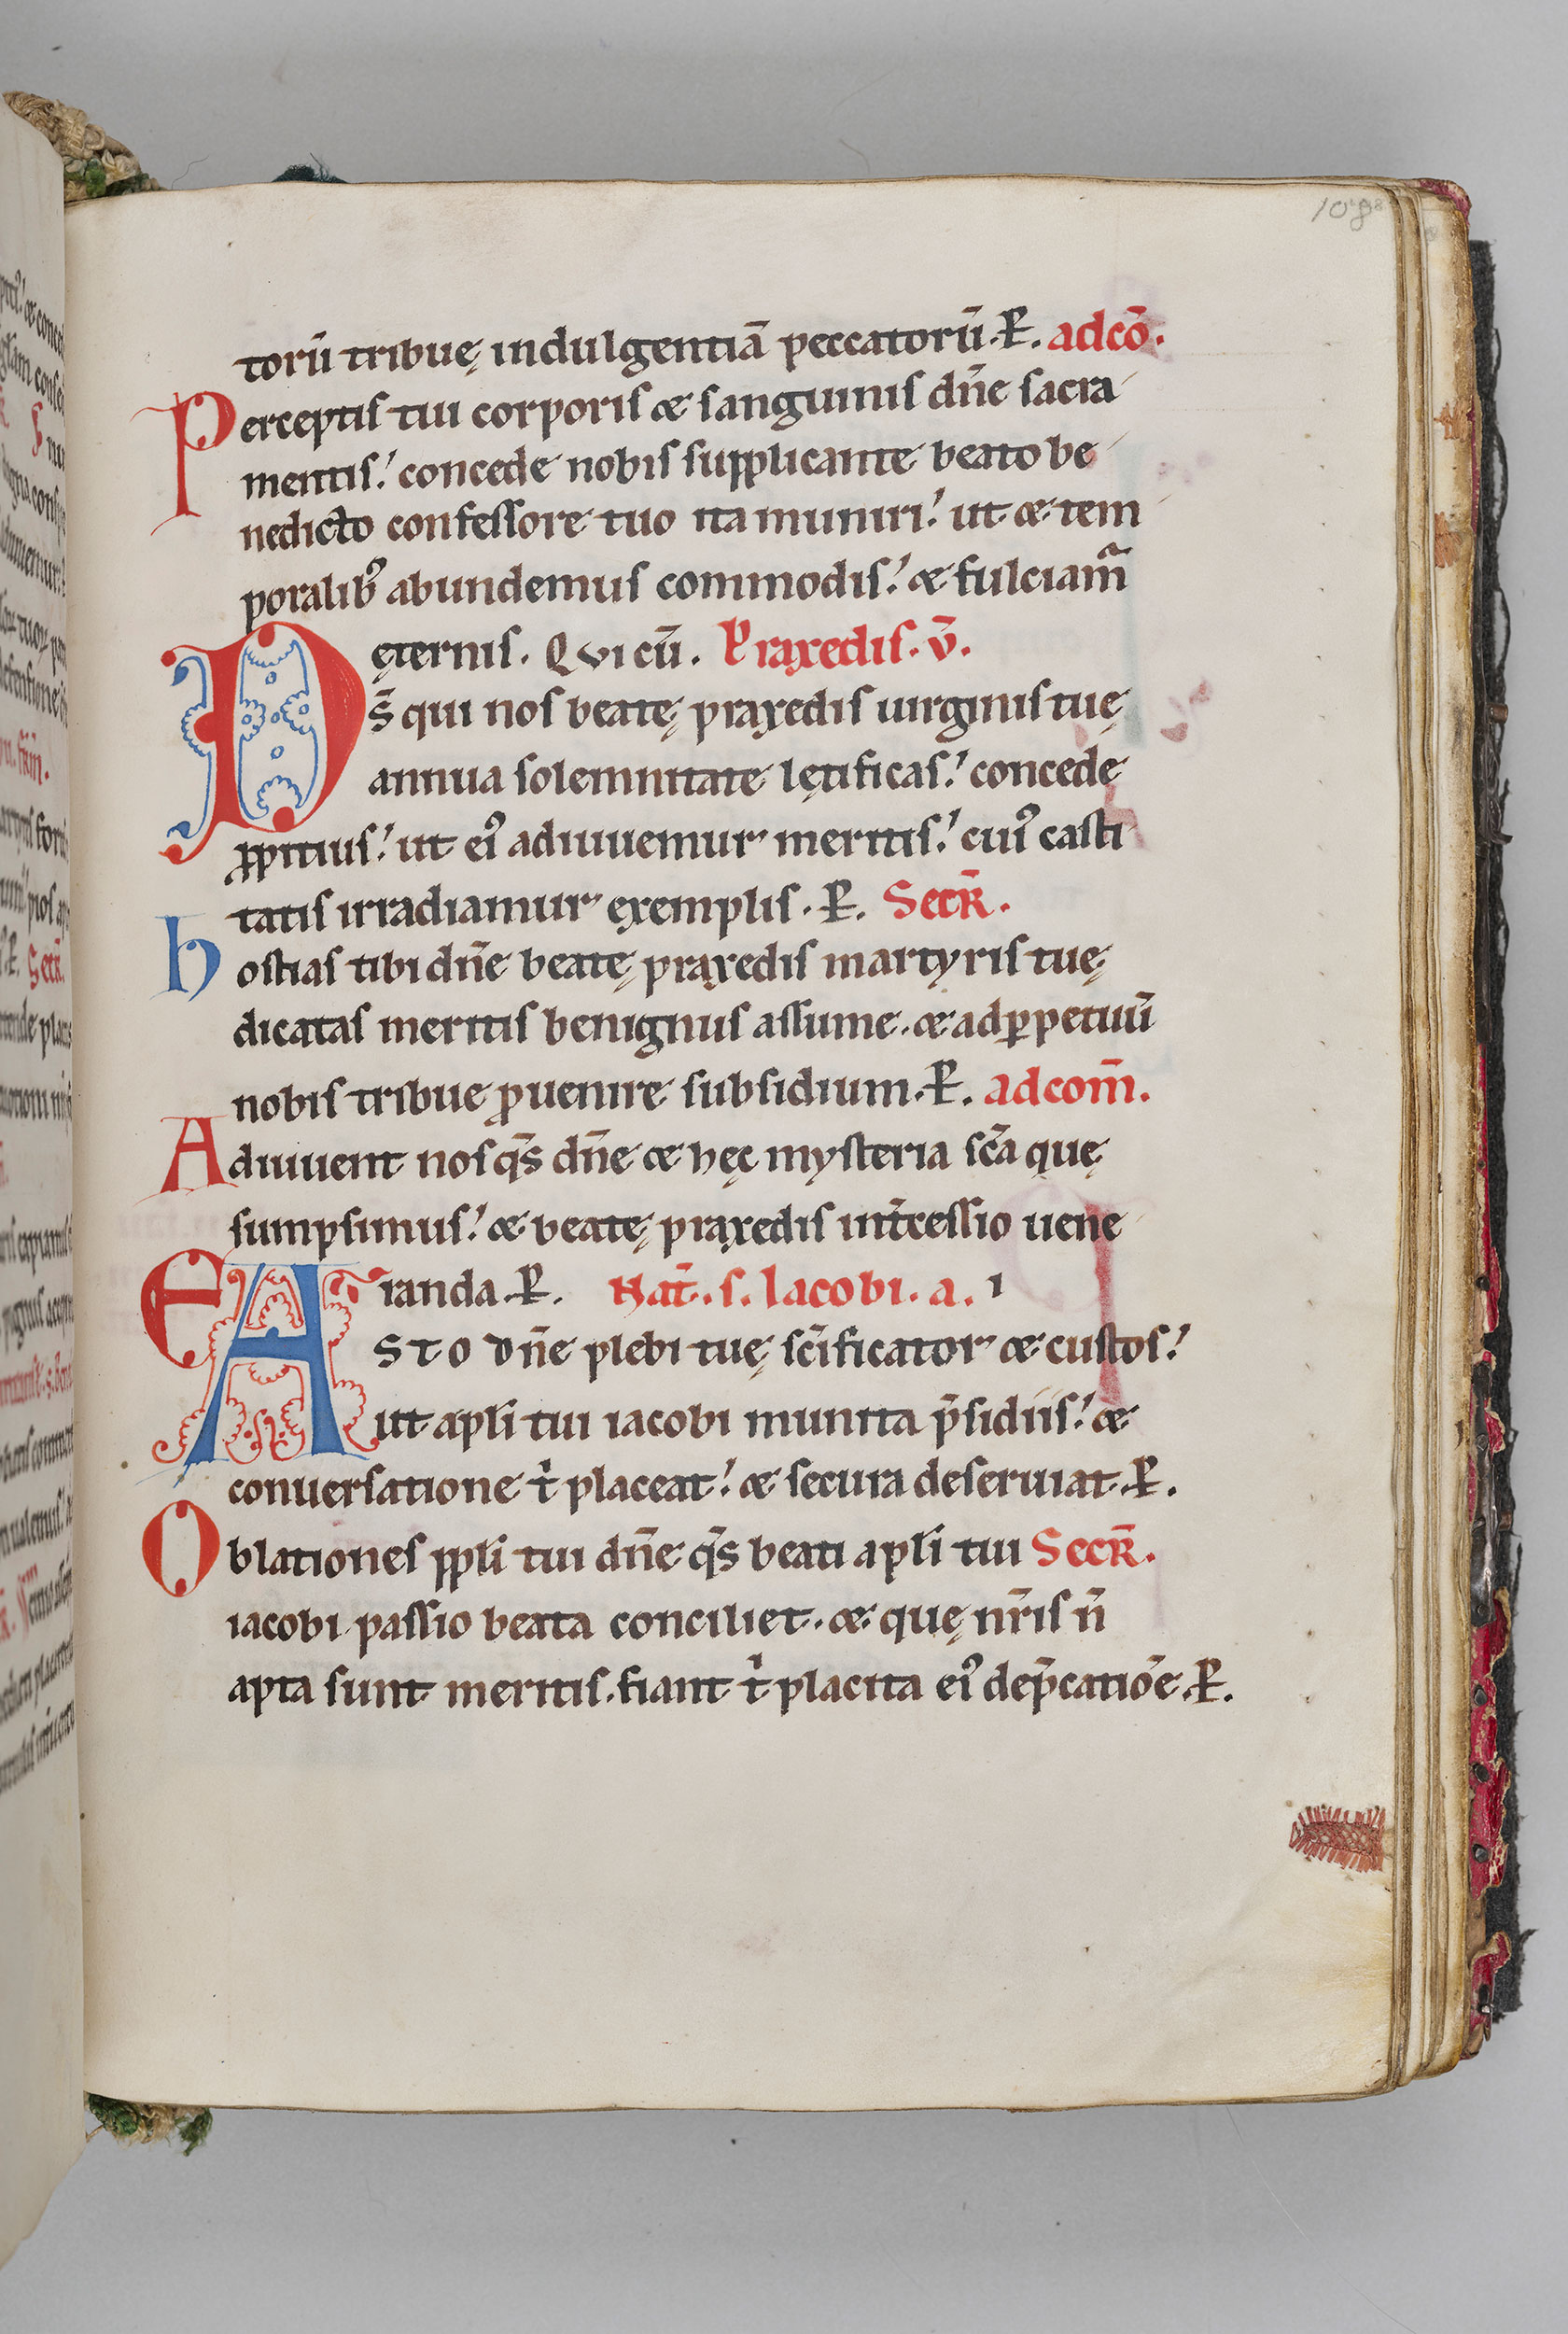 108
torū tribuę indulgentiā peccatorū. P̶. adcō.
Perceptis tui corporis æ sanguinis dn̄e sacra
mentis! concede nobis supplicante beato be
nedicto confessore tuo ita muniri! ut æ tem
poralibꝰ abundemus commodis! æ fulciam̃
ęternis. Qui cū. Praxedis. v̄.
Ds̄ qui nos beatę praxedis uirginis tuę
annua solemnitate lętificas! concede
ꝓpitius! ut eiꝰ adiuuemur meritis! cuiꝰ casti
tatis irradiamur exemplis. P̶. Secr̄.
hostias tibi dn̄e beatę praxedis martyris tuę
dicatas meritis benignus assume. æ ad ꝑpetuū
nobis tribue ꝓuenire subsidium. P̶. adcom̄.
Adiuuent nos qs̄ dn̄e æ hęc mysteria sc̄a quę
sumpsimus! æ beatę praxedis int̄cessio uene
randa. P̶. Nat̄. s. Iacobi. a. ı
ESTO dn̄e plebi tuę sc̄ificator æ custos!
ut apl̄i tui iacobi munita p̄sidiis! æ
conuersatione tⁱ placeat! æ secura deseruiat. P̶.
Oblationes ppl̄i tui dn̄e qs̄ beati apl̄i tui Secr̄.
iacobi passio beata conciliet. æ quę nr̄is n̄
apta sunt meritis. fiant tⁱ placita eiꝰ dep̄catiōe. P̶.